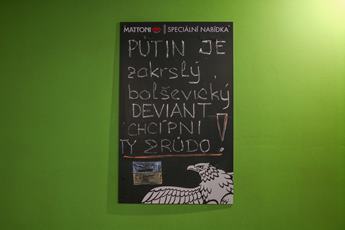 MATTONI | SPECIÁLNÍ NABÍDKA
PUTIN JE
zakrslý
bolševický
DEVIANT
CHCÍPNI
TY ZRŮDO!